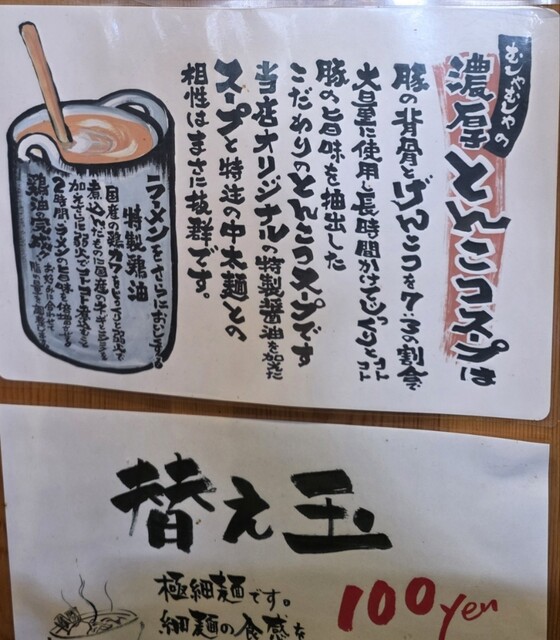 むしゃむしゃの
濃厚とんこつスープは
豚の背骨とげんこつを7:3の割合で
大量に使用し長時間かけじっくりとコトコト
豚の旨味を抽出した
こだわりのとんこつスープです
当店オリジナルの特製醤油を加えた
スープと特注の中太麺との
相性はまさに抜群です。
ラーメンをさらにおいしくする
特製鶏油
国産の鶏ガラをじっくりと弱火で
煮込んだものに国産のネギと生姜を
加えさらに弱火でコトコト煮込むこと
2時間。ラーメンの旨味を倍増させる
鶏油の完成!!
替え玉
極細麺です。
細麺の食感を
100yen